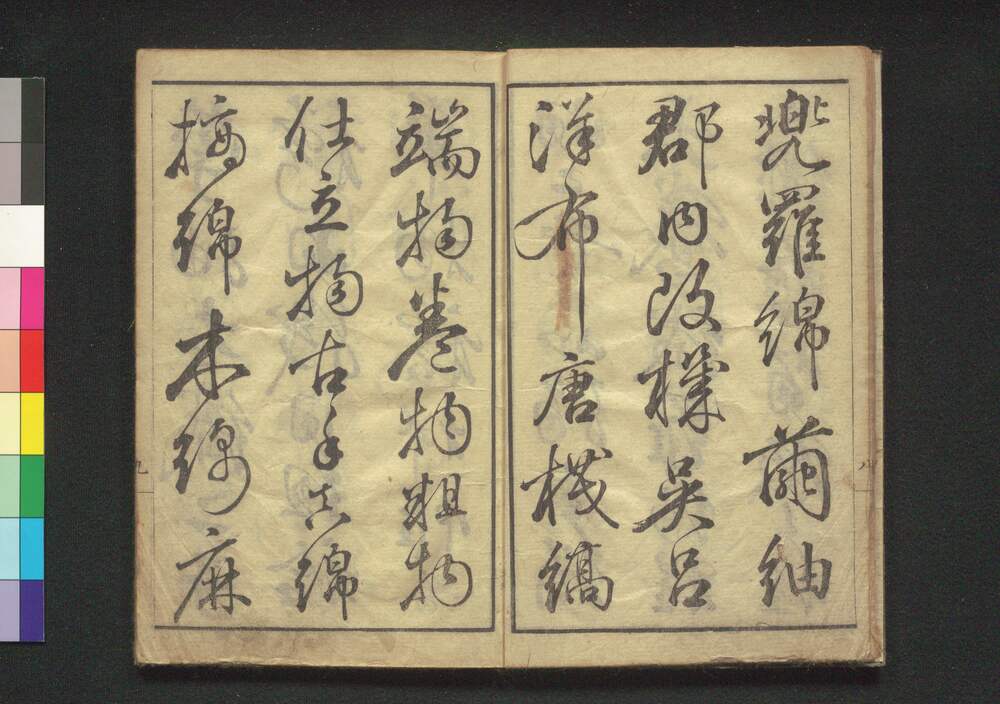 兜羅綿繭紬
郡内改機呉呂
洋布唐棧縞
八
端物巻物粗物
仕立物古手真綿
摘綿木綿麻
九